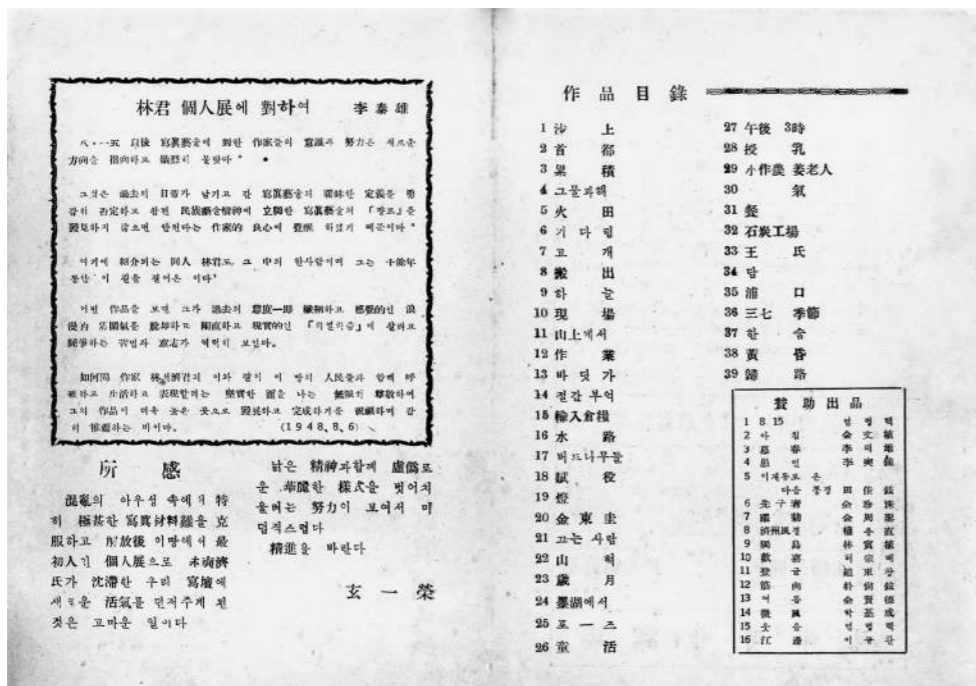 林君 個人展에 對하여 李泰雄
八·一五 以後 寫眞藝術에 對한 作家들의 意識과 努力은 새로운
方向을 指向하고 불탔다
그것은 過去의 日帝가 남기고 간 寫眞藝術의 曖昧한 定義를
감히 否定하고 참된 民族藝術精神에 立脚한 寫眞藝術의 『쟝르』를
發見하지 않으면 안된다는 作家的 良心에 覺醒 하였기 때문이다
여기에 紹介되는 同人 林君도 그 中의 한사람이며 그는 十餘年
동안 이 길을 걸어온 이다
이번 作品을 보면 그가 過去의 態度一即 纖細하고 感覺的인 浪
漫的 雰圍氣를 脫却하고 現實的인 『리얼리즘』에 살려고
鬪爭하는 苦悶과 意志가 역력히 보인다
如何間 作家 林奭濟君의 이와 같이 이 땅의 人民들과 함께 呼
吸하고 生活하고 表現할려는 堅實한 面을 나는 無限히 尊敬하며
그의 作品이 더욱 높은 곳으로 發展하고 完成하기를 祝願하며 감
히 推薦하는 바이다. (1948.8.6)
所感
混亂의 아우성 속에서 特
히 極甚한 寫眞材料難을 克
服하고 解放後 이땅에서 最
初人인 個人展으로 林奭濟
氏가 沈滯한 우리 寫壇에
새로운 活氣를 던져주게 된
것은 고마운 일이다
낡은 精神과함께 虛僞로
운 華麗한 樣式을 벗어치
울려는 努力이 보여서 미
덥직스럽다
精進을 바란다
玄一榮
作品目錄
1 沙上
2 首都
3 累積
4 그물과배
5 火田
6 기다림
7 고개
8 搬出
9 하늘
10 現場
11 山上에서
12 作業
13 바닷가
14 절간부엌
15 輸入食糧
16 水路
17 버드나무들
18 賦役
19 燈
20 金東圭
21 끄는 사람
22 山허
23 歲月
24 墨湖에서
25 로―즈
26 童活
27 午後 3時
28 授乳
29 小作農 姜老人
30 氣
31 餐
32 石炭工場
33 王氏
34 담
35 浦口
36 三七 季節
37 한숨
38 黃昏
39 歸路
賛助出品
1 8 15
2 아침 金文
3 暮春 李
4 李
5 이제동로 온
마음 풍경 田
6
7 躍動 金周
8 濟州風경
9 獨島 林寅植
10 歡喜
11 登글 趙東
12 筋肉 朴
13 여름 金
14 微風 박基成
15 웃음
16 江邊